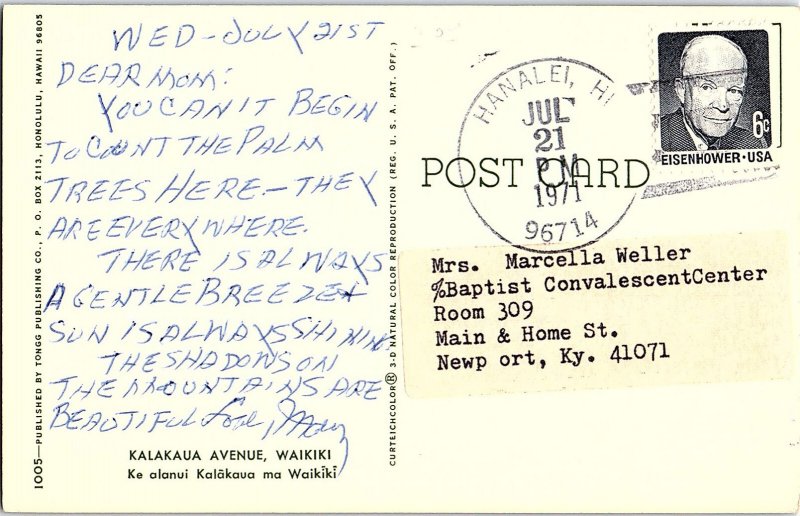 WED-JULY 21ST
DEAR MOM:
YOU CAN'T BEGIN
TO COUNT THE PALM
TREES HERE - THEY
ARE EVERYWHERE.
THERE IS ALWAYS
A GENTLE BREEZE +
SUN IS ALWAYS SHINING
THE SHADOWS ON
THE MOUNTAINS ARE
BEAUTIFUL Love, Mary
KALAKAUA AVENUE, WAIKIKI
Ke alanui Kalākaua ma Waikīkī
1005—PUBLISHED BY TONGG PUBLISHING CO., P. O. BOX 2113, HONOLULU, HAWAII 96805
CURTEICHCOLOR® 3-D NATURAL COLOR REPRODUCTION (REG. U. S. A. PAT. OFF.)
POST CARD
HANALEI, HI
JUL
21
PM
1971
96714
6c
EISENHOWER·USA
Mrs. Marcella Weller
%Baptist ConvalescentCenter
Room 309
Main & Home St.
Newp ort, Ky. 41071